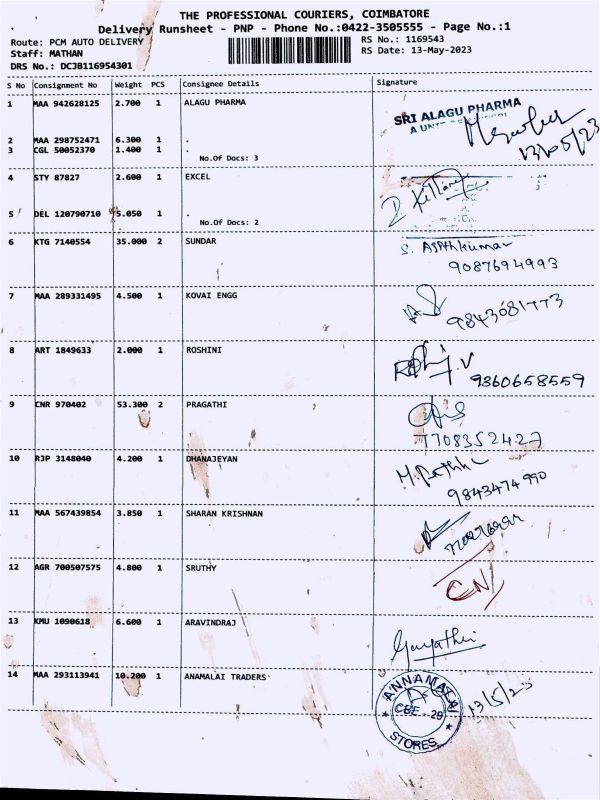 THE PROFESSIONAL COURIERS, COIMBATORE
Delivery Runsheet - PNP - Phone No.:0422-3505555 - Page No.:1
Route: PCM AUTO DELIVERY RS No.: 1169543
Staff: MATHAN RS Date: 13-May-2023
DRS No.: DCJB116954301
S No Consignment No Weight PCS Consignee Details Signature
1 MAA 942628125 2.700 1 ALAGU PHARMA
SRI ALAGU PHARMA
13/05/23
2 MAA 298752471 6.300 1 .
3 CGL 50052370 1.400 1 .
No.Of Docs: 3
4 STY 87827 2.600 1 EXCEL
5 DEL 120790710 5.050 1 .
No.Of Docs: 2
6 KTG 7140554 35.000 2 SUNDAR
9087694993
7 MAA 289331495 4.500 1 KOVAI ENGG
9843081773
8 ART 1849633 2.000 1 ROSHINI
9360658559
9 CNR 970402 53.300 2 PRAGATHI
7708352427
10 RJP 3148040 4.200 1 DHANAJEYAN
9843474990
11 MAA 567439854 3.850 1 SHARAN KRISHNAN
12 AGR 700507575 4.800 1 SRUTHY
13 KMU 1090618 6.600 1 ARAVINDRAJ
Gayathri
14 MAA 293113941 10.200 1 ANAMALAI TRADERS
ANNAMALAI
CBE - 29
STORES
13/5/23